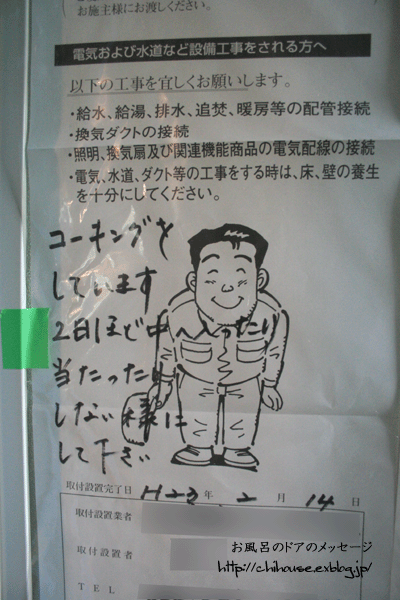 お施主様にお渡しください。
電気および水道など設備工事をされる方へ
以下の工事を宜しくお願いします。
・給水、給湯、排水、追焚、暖房等の配管接続
・換気ダクトの接続
・照明、換気扇及び関連機能商品の電気配線の接続
・電気、水道、ダクト等の工事をする時は、床、壁の養生
を十分にしてください。
コーキングを
しています
2日ほど中へ入ったり
当たったり
しない様に
して下さい
取付設置完了日 H23年 2月 14日
取付設置業者
取付設置者
TEL
お風呂のドアのメッセージ
http://chihouse.exblog.jp/